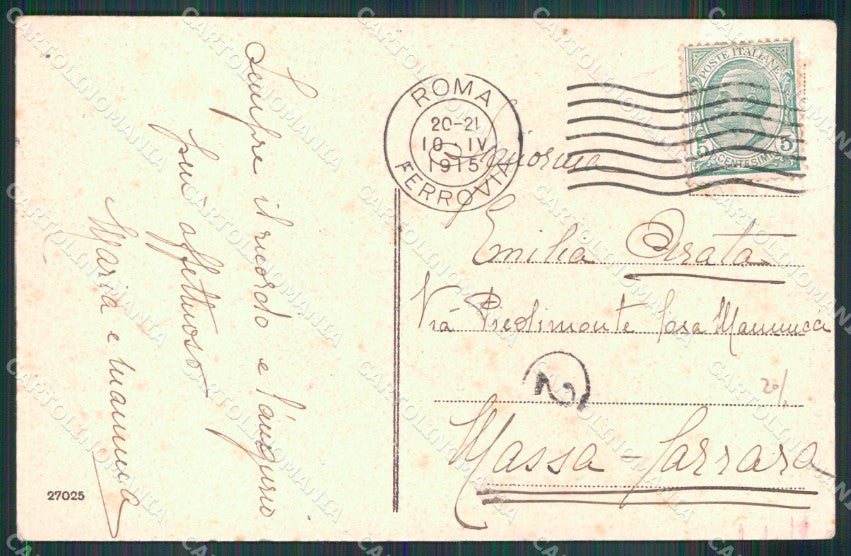 Sempre il ricordo e l'augurio
più affettuoso
Maria e mamma
27025
ROMA
20-21
10 IV
1915
FERROVIA
POSTE ITALIANE
5 5
CENTESIMI
Signorina
Emilia Arata
Via Piedimonte Casa
Massa-Carrara
2
CARTOLINOMANIA